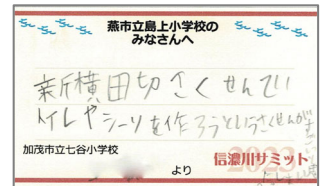 燕市立島上小学校の
みなさんへ
新横田切さくせんてい
トイレやシーソーを作ろうというさくせんが
加茂市立七谷小学校
より
信濃川サミット
2023